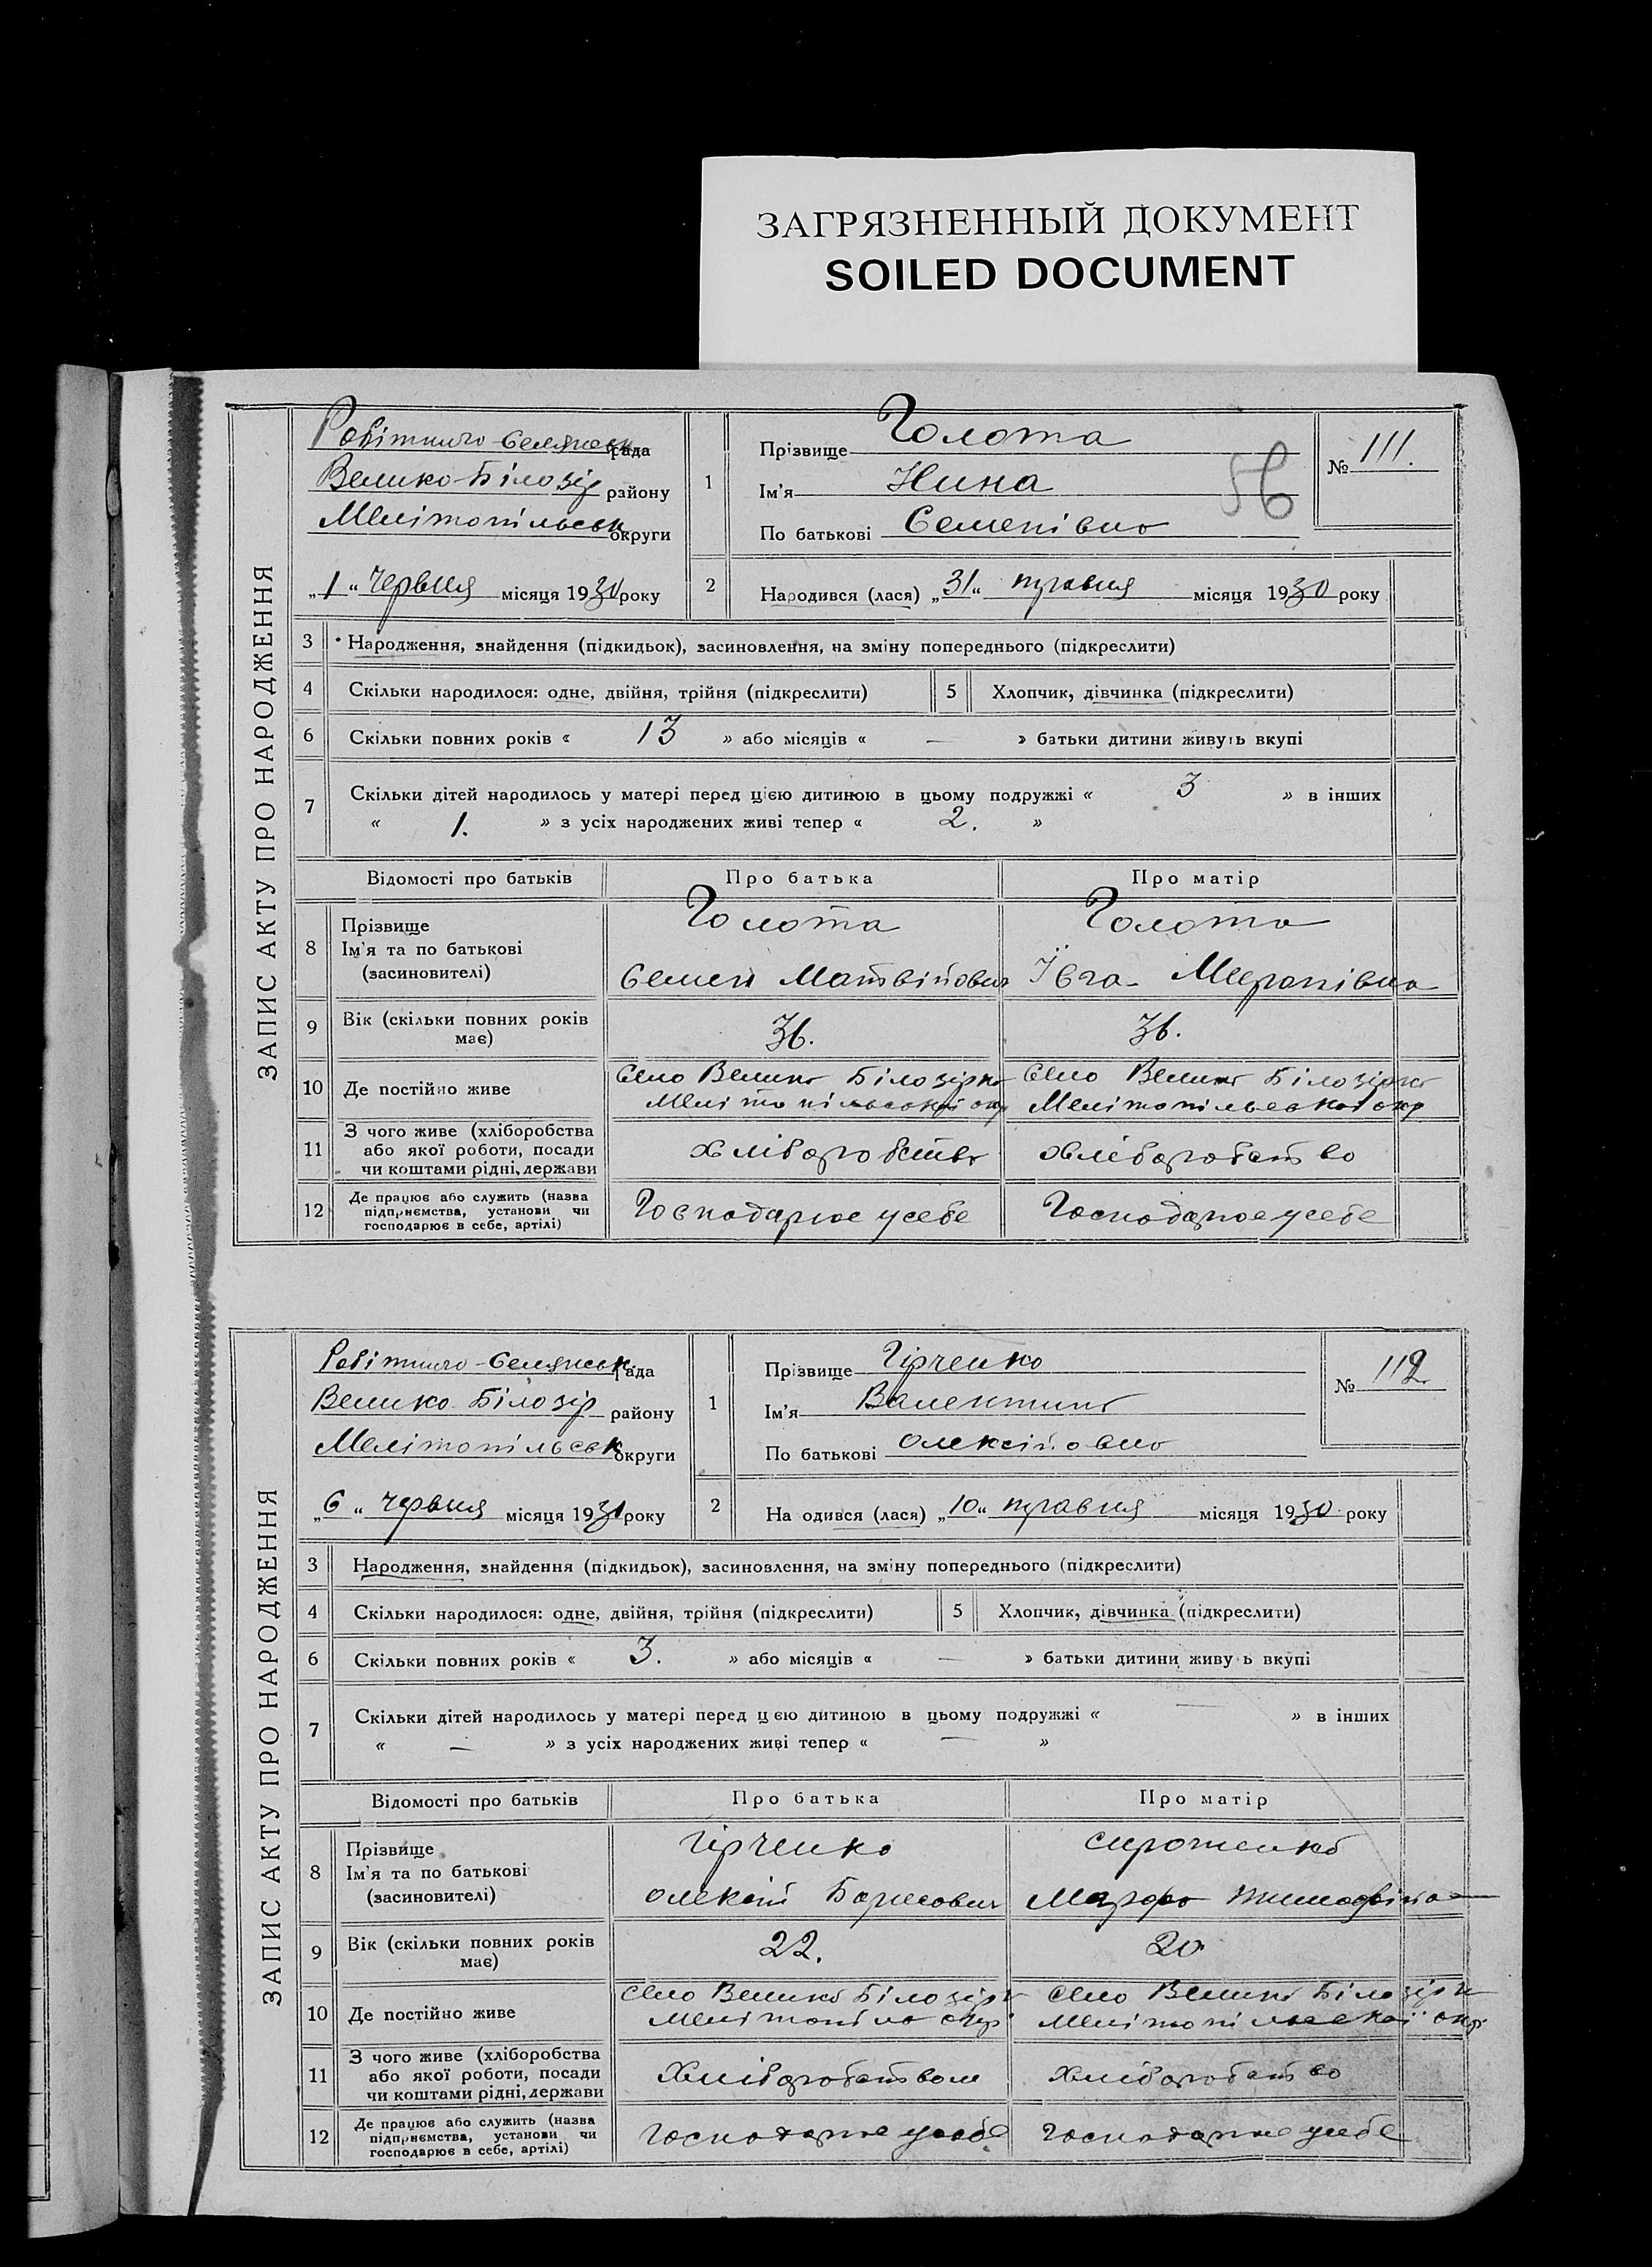 ЗАГРЯЗНЕННЫЙ ДОКУМЕНТ
SOILED DOCUMENT
ЗАПИС АКТУ ПРО НАРОДЖЕННЯ
Робітничо-Селянськ рада
Велико-Білозір району
Мелітопільськ округи
„1“ Червня місяця 1930 року
1
Прізвище Голота
Ім'я Нина
По батькові Семенівна
56
№ 111.
2 Народився (лася) „31“ травня місяця 1930 року
3 Народження, знайдення (підкидьок), засиновлення, на зміну попереднього (підкреслити)
4 Скільки народилося: одне, двійня, трійня (підкреслити) 5 Хлопчик, дівчинка (підкреслити)
6 Скільки повних років « 13 » або місяців « — » батьки дитини живуть вкупі
7 Скільки дітей народилось у матері перед цією дитиною в цьому подружжі « 3 » в інших
« 1. » з усіх народжених живі тепер « 2. »
Відомості про батьків Про батька Про матір
8 Прізвище
Ім'я та по батькові
(засиновителі)
Голота
Семен Матвійович
Голота
Ївга Миронівна
9 Вік (скільки повних років
має)
36. 36.
10 Де постійно живе
Село Велика Білозірка
Мелітопільської окр
Село Велика Білозірка
Мелітопільської окр
11 З чого живе (хліборобства
або якої роботи, посади
чи коштами рідні, держави
хліборобство хліборобство
12 Де працює або служить (назва
підприємства, установи чи
господарює в себе, артілі)
Господарює у себе Господарює у себе
ЗАПИС АКТУ ПРО НАРОДЖЕННЯ
Робітничо-Селянськ. рада
Велико-Білозір району
Мелітопільськ округи
„6“ червня місяця 1930 року
1
Прізвище Гірченко
Ім'я Валентина
По батькові Олексійовна
№ 112.
2 На одився (лася) „10“ травня місяця 1930 року
3 Народження, знайдення (підкидьок), засиновлення, на зміну попереднього (підкреслити)
4 Скільки народилося: одне, двійня, трійня (підкреслити) 5 Хлопчик, дівчинка (підкреслити)
6 Скільки повних років « 3. » або місяців « — » батьки дитини живу ь вкупі
7 Скільки дітей народилось у матері перед цією дитиною в цьому подружжі « — » в інших
« — » з усіх народжених живі тепер « — »
Відомості про батьків Про батька Про матір
8 Прізвище
Ім'я та по батькові
(засиновителі)
Гірченко
Олексій Борисович
9 Вік (скільки повних років
має)
22. 20
10 Де постійно живе
Село Велика Білозірк
Мелітопіль окр
Село Велика Білозірк
Мелітопільської окр.
11 З чого живе (хліборобства
або якої роботи, посади
чи коштами рідні, держави
Хліборобством Хліборобство
12 Де працює або служить (назва
підприємства, установи чи
господарює в себе, артілі)
Господарює у себе Господарює у себе